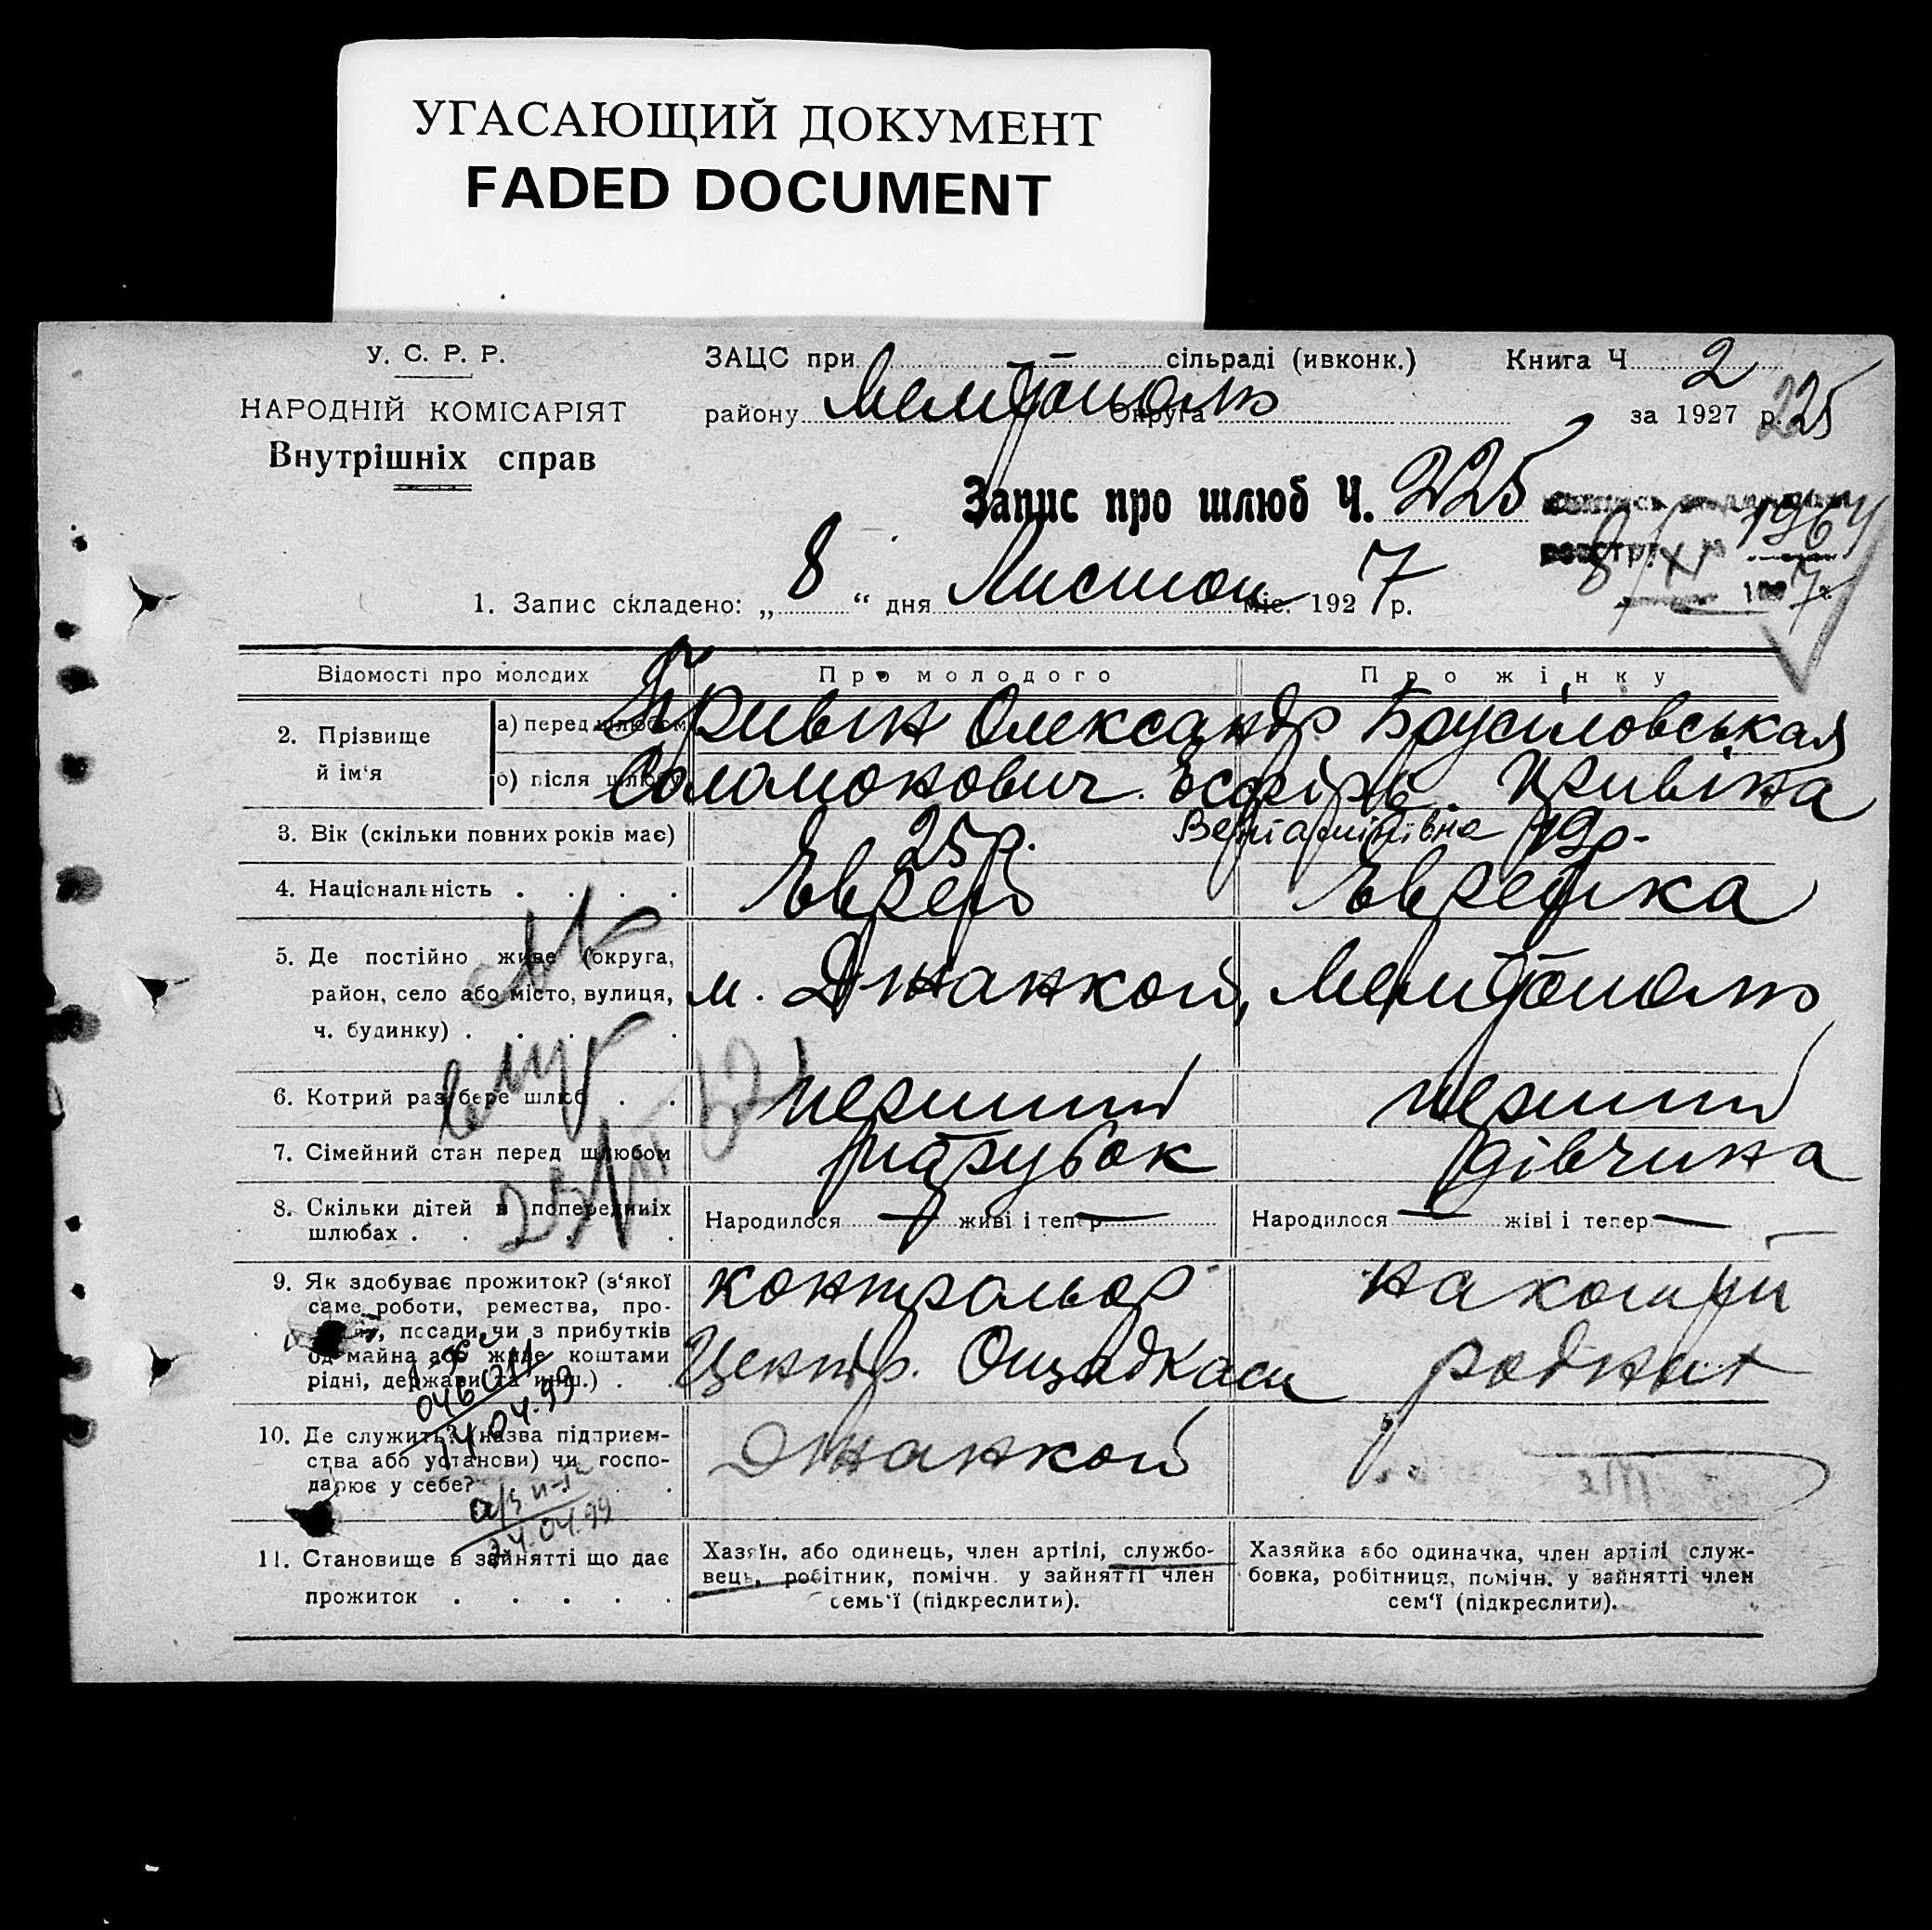 УГАСАЮЩИЙ ДОКУМЕНТ
FADED DOCUMENT
У. С. Р. Р.
НАРОДНІЙ КОМІСАРІЯТ
Внутрішніх справ
ЗАЦС при — сільраді (ивконк.) Книга Ч 2
району Мелітополь Округа за 1927 р. 225
Запис про шлюб Ч. 225
1964
1. Запис складено: „ 8 “ дня Листоп міс. 1927 р.
Відомості про молодих Про молодого Про жінку
2. Прізвище й ім'я
а) перед шлюбом
о) після шлюбу
Привін Олександр
Соломонович
Брусіловськая
Есфірь. Привіна
Веніамінівна
3. Вік (скільки повних років має) 25 р. 19 р.
4. Національність Еврей Еврейка
5. Де постійно живе (округа,
район, село або місто, вулиця,
ч. будинку)
м. Джанкой, Мелітополь
6. Котрий раз бере шлюб перший перший
7. Сімейний стан перед шлюбом парубок дівчина
8. Скільки дітей в попередніх
шлюбах
Народилося — живі і тепер — Народилося — жіві і тепер —
9. Як здобуває прожиток? (з'якої
саме роботи, ремества, про-
посади, чи з прибутків
од майна або живе коштами
рідні, держави та инш.)
контрольор
Центр. Ощадкаси
на кошти
родних
046011
14.04.99
10. Де служить? (назва підприєм-
ства або установи) чи госпо-
дарює у себе?
Джанкой
24.04.99
11. Становище в зайнятті що дає
прожиток
Хазяїн, або одинець, член артілі, службо-
вець, робітник, помічн. у зайнятті член
семь'ї (підкреслити).
Хазяйка або одиначка, член артілі служ-
бовка, робітниця, помічн. у зайнятті член
сем'ї (підкреслити).